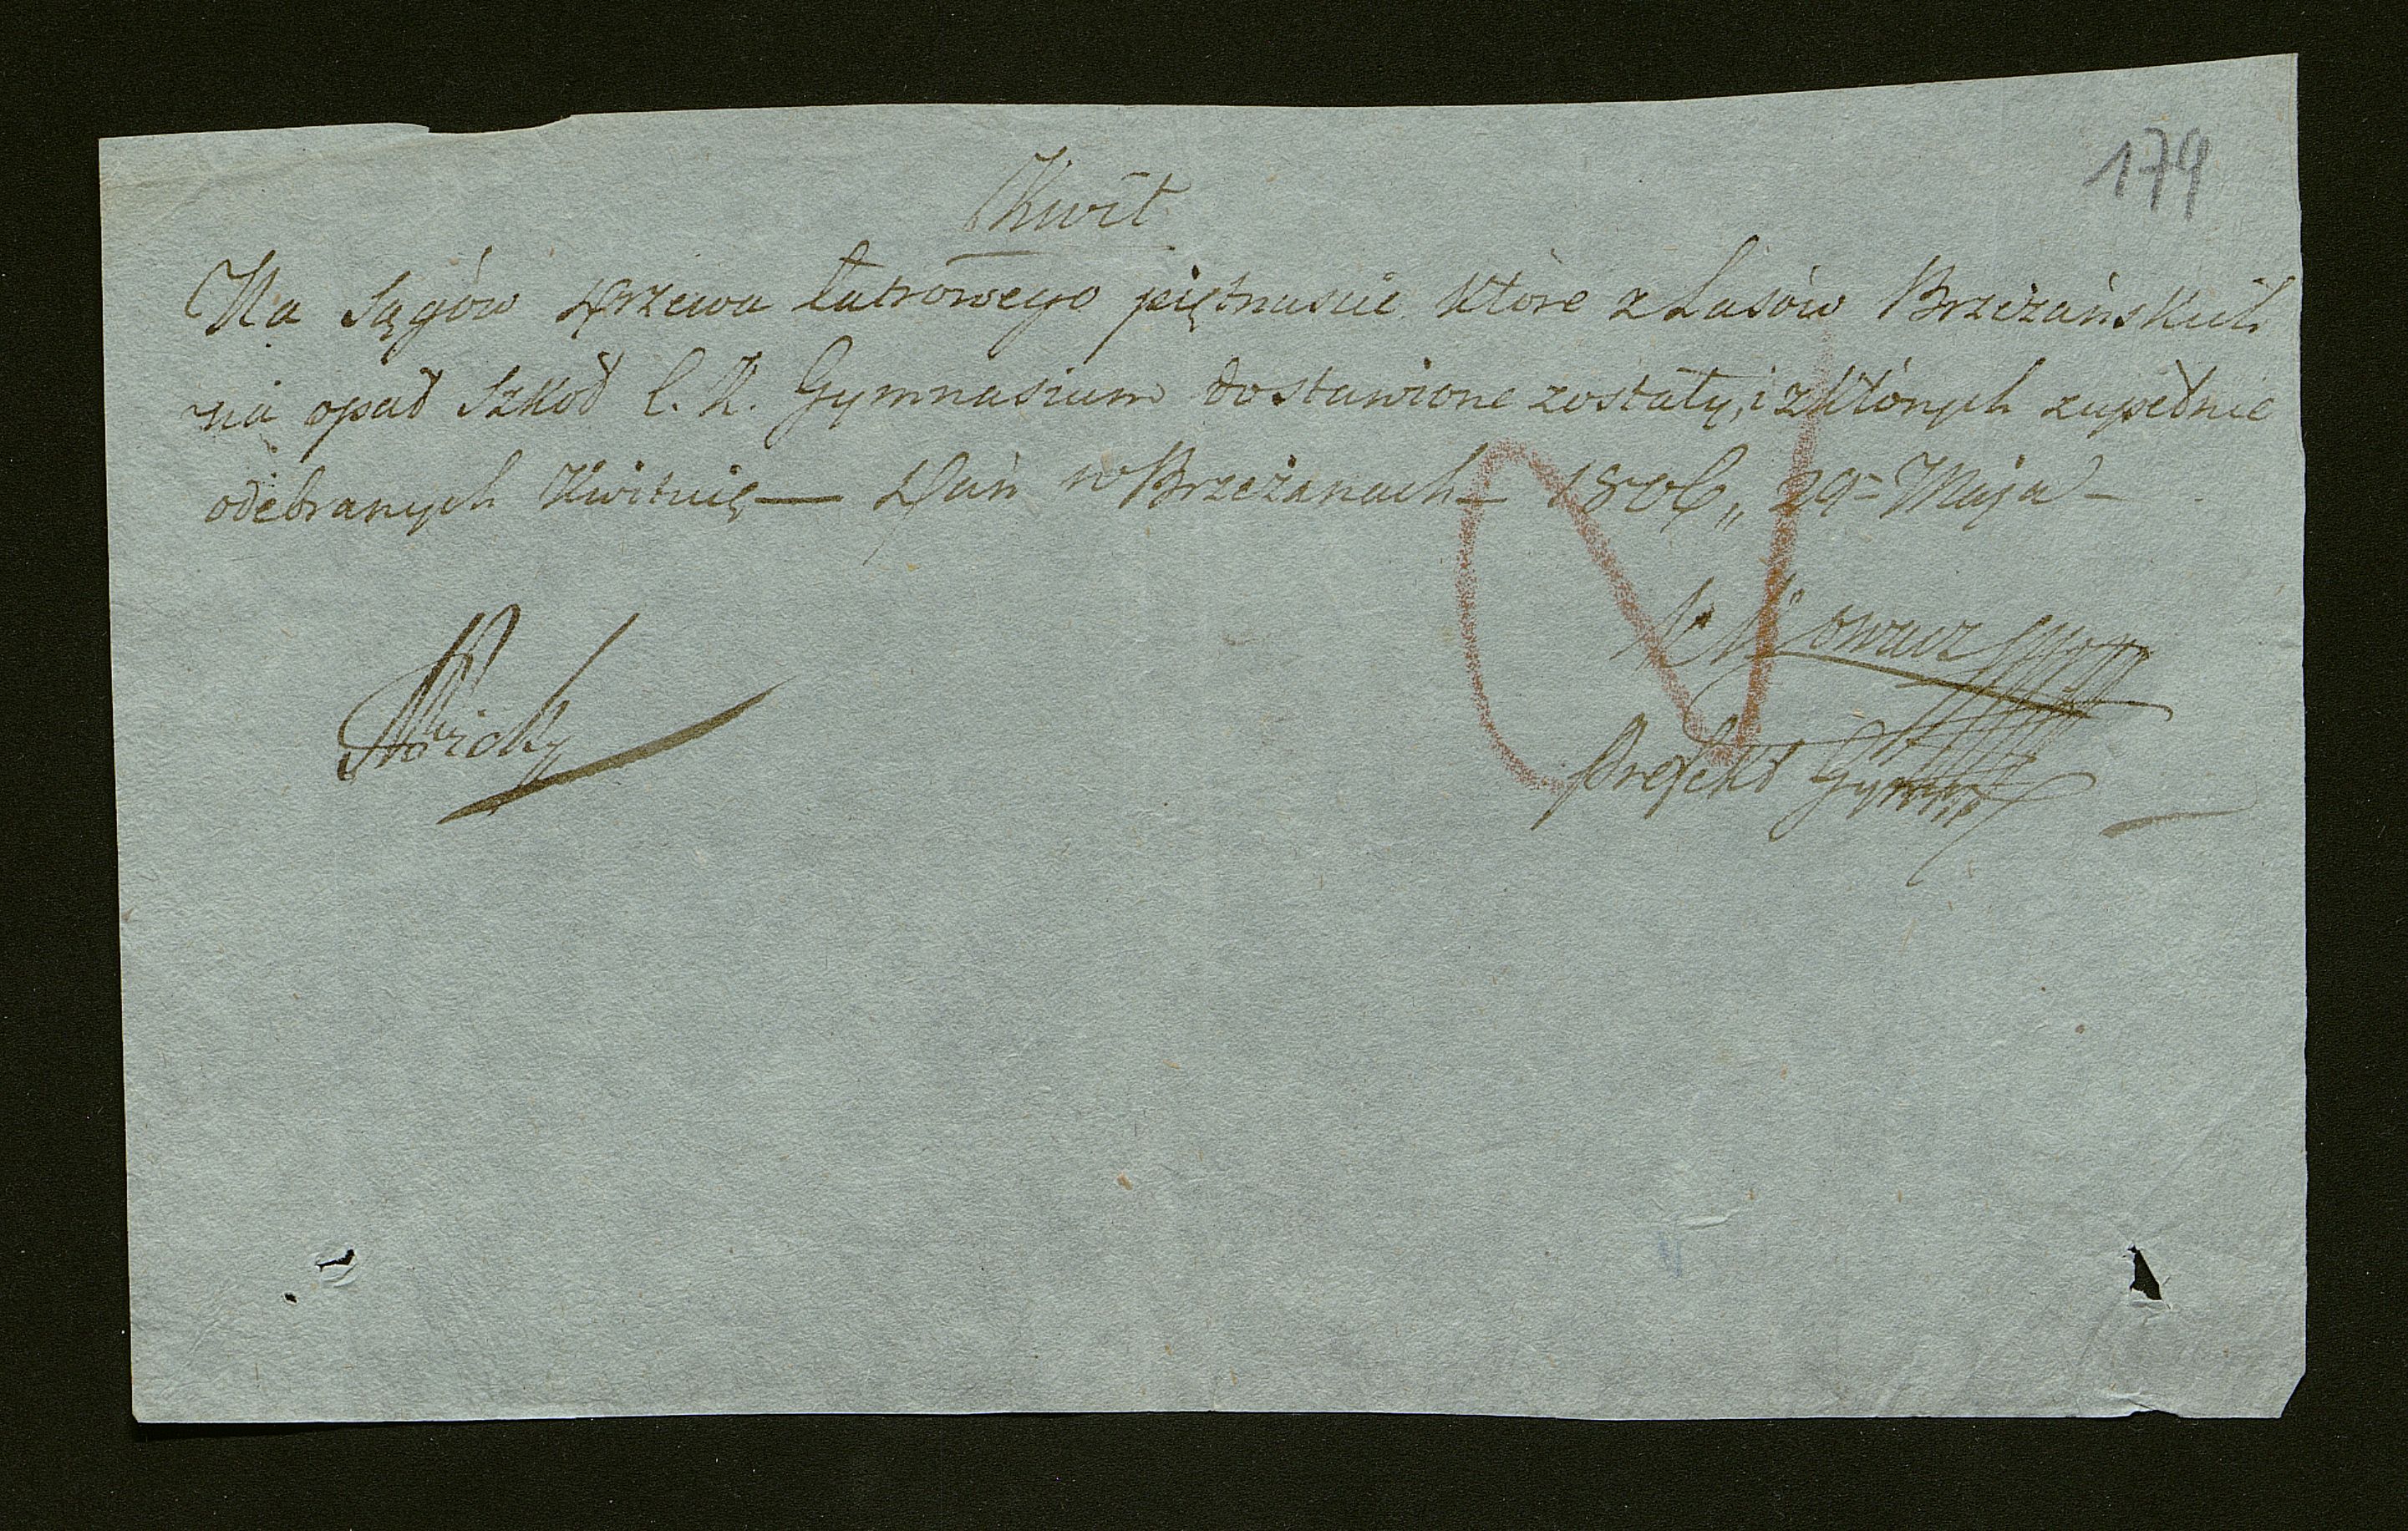 179
Kwit
Na Sągów drzewa łatrowego piętnascie które z Lasów Brzeżańskich
na opał Szkoł C. K. Gymnasium dostawione zostały, i z których zupełnie
odebranych Kwituię — Dań w Brzeżanach — 1806 „ 29 = Maja —
Prefekt Gymn